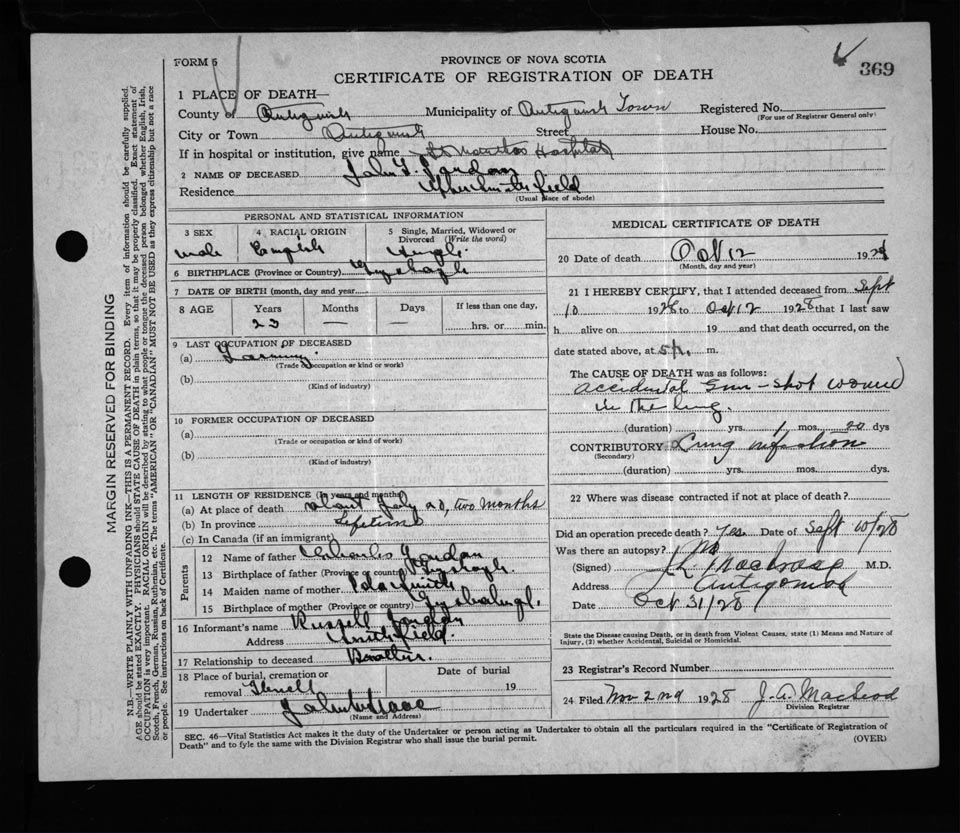 FORM 5
PROVINCE OF NOVA SCOTIA
369
CERTIFICATE OF REGISTRATION OF DEATH
1 PLACE OF DEATH—
County of Antigonish Municipality of Antigonish Town Registered No.
(For use of Registrar General only)
City or Town Antigonish Street House No.
If in hospital or institution, give name St Marthas Hospital
2 NAME OF DECEASED John
Residence
(Usual place of abode)
PERSONAL AND STATISTICAL INFORMATION
3 SEX 4 RACIAL ORIGIN 5 Single, Married, Widowed or Divorced (Write the word)
male English Single
6 BIRTHPLACE (Province or Country)
7 DATE OF BIRTH (month, day and year)
8 AGE Years Months Days If less than one day,
23 — — hrs. or min.
9 LAST OCCUPATION OF DECEASED
(a) Farming
(Trade or occupation or kind or work)
(b)
(Kind of industry)
10 FORMER OCCUPATION OF DECEASED
(a)
(Trade or occupation or kind or work)
(b)
(Kind of industry)
11 LENGTH OF RESIDENCE (in years and months)
(a) At place of death two months
(b) In province Lifetime
(c) In Canada (if an immigrant)
Parents
12 Name of father Charles
13 Birthplace of father (Province or country)
14 Maiden name of mother
15 Birthplace of mother (Province or country)
16 Informant's name Russell
Address Smithfield
17 Relationship to deceased Brother.
18 Place of burial, cremation or Date of burial
removal 19
19 Undertaker
(Name and Address)
MEDICAL CERTIFICATE OF DEATH
20 Date of death Oct 12 1928
(Month, day and year)
21 I HEREBY CERTIFY, that I attended deceased from Sept
10 1928 to Oct 12 1928 that I last saw
h alive on 19 and that death occurred, on the
date stated above, at 5 m.
The CAUSE OF DEATH was as follows:
accidental Gun-shot wound
in the lung.
(duration) yrs. 1 mos. 20 dys
CONTRIBUTORY Lung infection
(Secondary)
(duration) yrs. mos. dys.
22 Where was disease contracted if not at place of death?
Did an operation precede death? Yes. Date of Sept 10/28
Was there an autopsy? No
(Signed) M.D.
Address Antigonish
Date Oct 31/28
State the Disease causing Death, or in death from Violent Causes, state (1) Means and Nature of
Injury, (2) whether Accidental, Suicidal or Homicidal.
23 Registrar's Record Number
24 Filed Nov 2nd 1928 J. A. MacLeod
Division Registrar
SEC. 46—Vital Statistics Act makes it the duty of the Undertaker or person acting as Undertaker to obtain all the particulars required in the "Certificate of Registration of
Death" and to fyle the same with the Division Registrar who shall issue the burial permit. (OVER)
MARGIN RESERVED FOR BINDING
N.B.—WRITE PLAINLY WITH UNFADING INK—THIS IS A PERMANENT RECORD. Every item of information should be carefully supplied.
AGE should be stated EXACTLY. PHYSICIANS should STATE CAUSE OF DEATH in plain terms, so that it may be properly classified. Exact statement of
OCCUPATION is very important. RACIAL ORIGIN will be described by stating to what people or tongue the deceased person belonged whether English, Irish,
Scotch, French, German, Russian, Ruthenian, etc. The terms "AMERICAN" or "CANADIAN" MUST NOT BE USED as they express citizenship but not a race
or people. See instructions on back of Certificate.